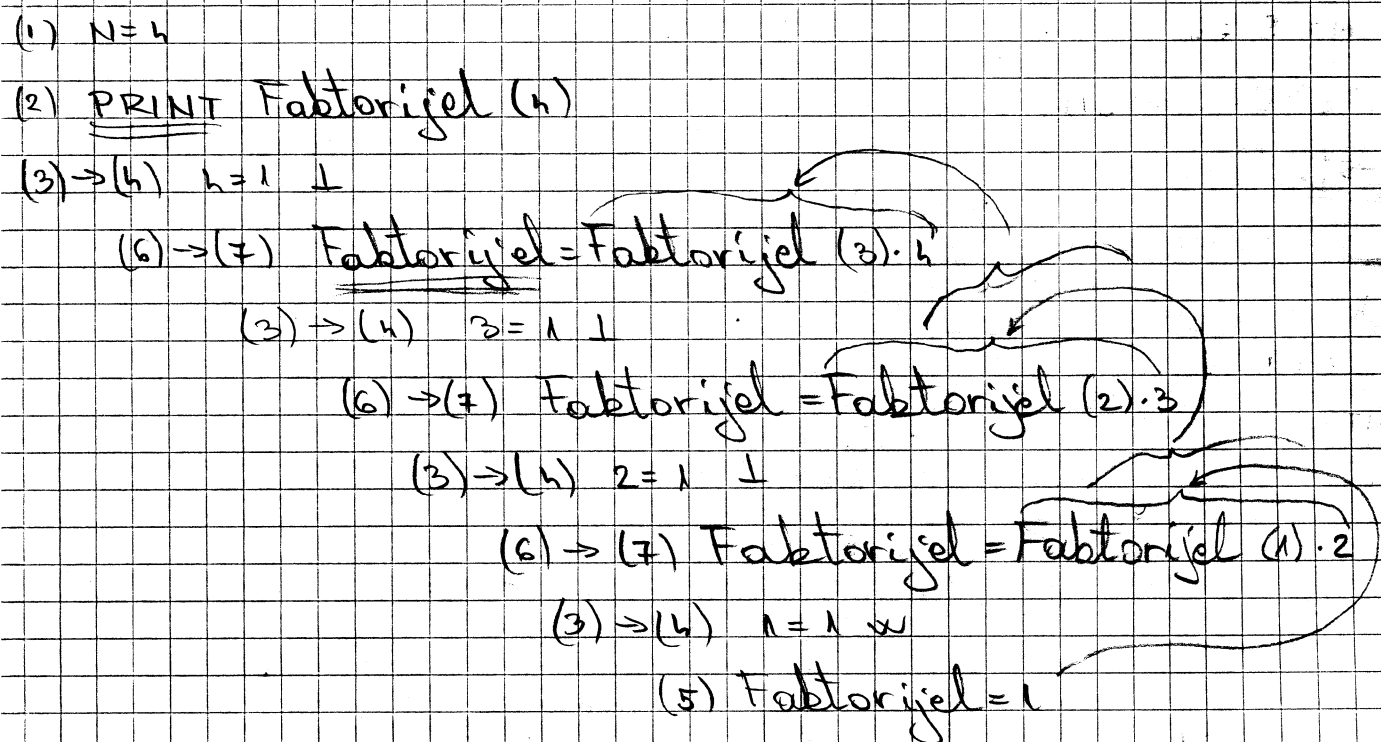 (1) N=4
(2) PRINT Faktorijel (4)
(3)→(4) 4=1 ⊥
(6)→(7) Faktorijel=Faktorijel (3)·4
(3)→(4) 3=1 ⊥
(6)→(7) Faktorijel=Faktorijel (2)·3
(3)→(4) 2=1 ⊥
(6)→(7) Faktorijel=Faktorijel (1)·2
(3)→(4) 1=1
(5) Faktorijel=1